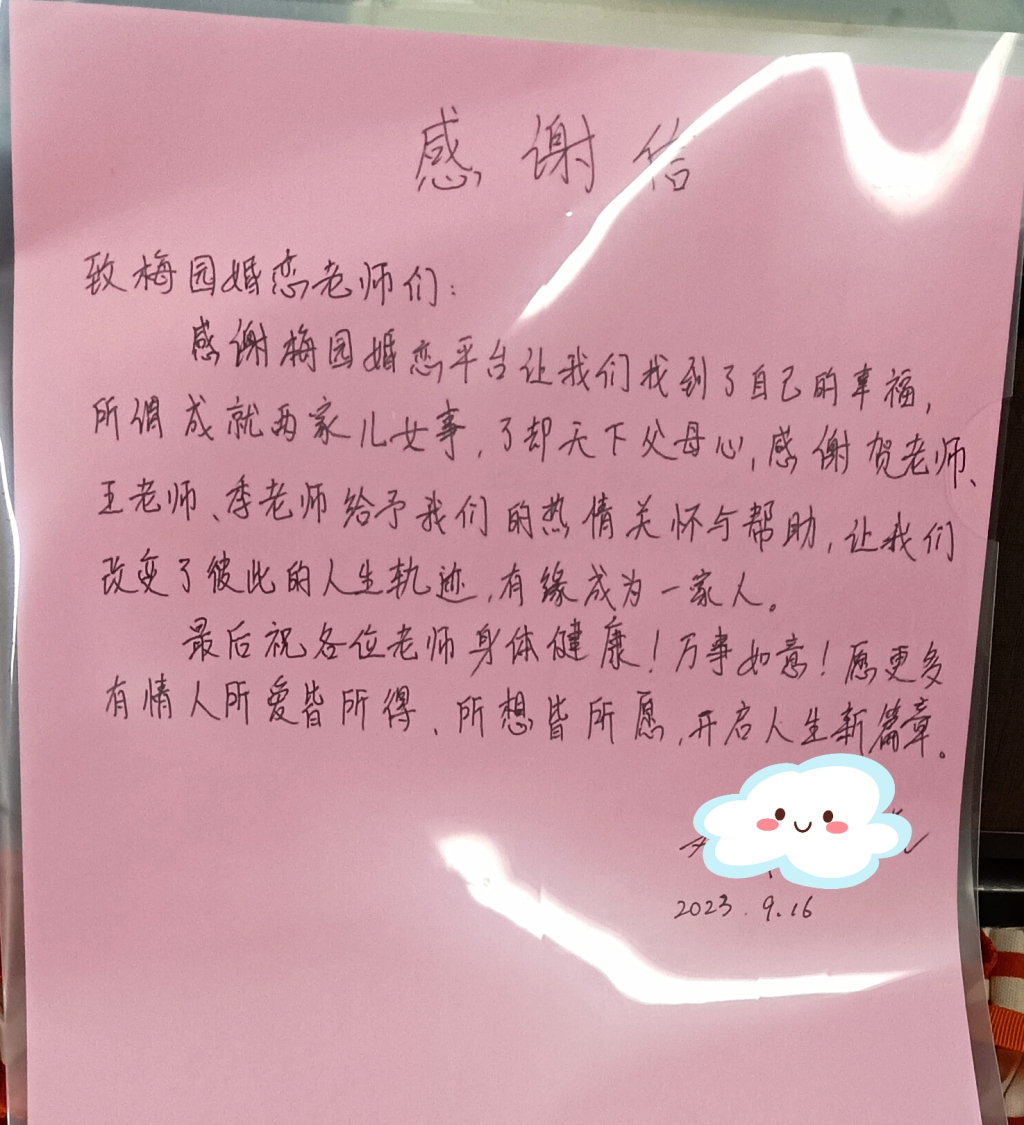 感谢信
致梅园婚恋老师们:
感谢梅园婚恋平台让我们找到了自己的幸福,
所偶成就两家儿女事,了却天下父母心,感谢贺老师、
王老师、季老师给予我们的热情关怀与帮助,让我们
改变了彼此的人生轨迹,有缘成为一家人。
最后祝各位老师身体健康!万事如意!愿更多
有情人所爱皆所得、所想皆所愿,开启人生新篇章。
2023.9.16